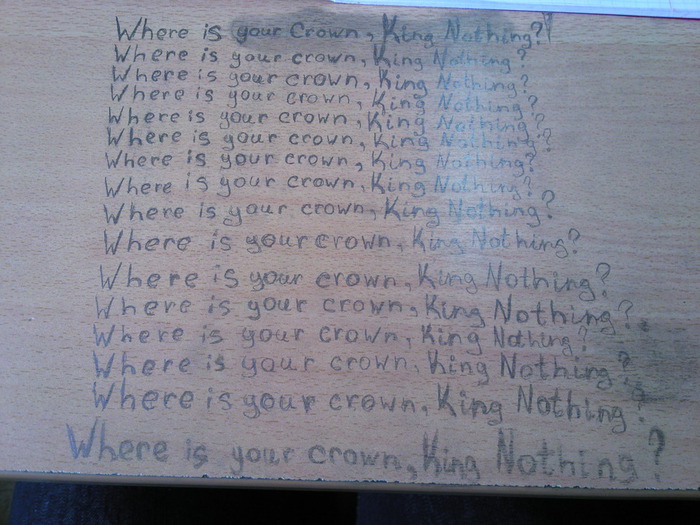 Where is your Crown, King Nothing?
Where is your crown, King Nothing?
Where is your crown, King Nothing?
Where is your crown, King Nothing?
Where is your crown, King Nothing?
Where is your crown, King Nothing?
Where is your crown, King Nothing?
Where is your crown, King Nothing?
Where is your crown, King Nothing?
Where is your crown, King Nothing?
Where is your crown, King Nothing?
Where is your crown, King Nothing?
Where is your crown, King Nothing?
Where is your crown, King Nothing?
Where is your crown, King Nothing?
Where is your crown, King Nothing?